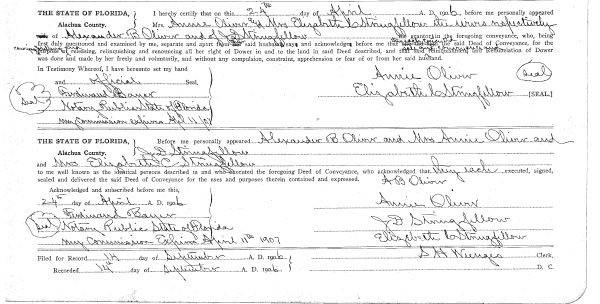 THE STATE OF FLORIDA, I hereby certify that on this 24th day of April A. D. 1906, before me personally appeared
Alachua County. Mrs. Annie Oliver and Mrs Elizabeth C Stringfellow the wives respectively
of Alexander B Oliver and J D Stringfellow grantor in the foregoing conveyance, who, being
first duly questioned and examined by me, separate and apart from said husband, says and acknowledges before me that the said Deed of Conveyance, for the
purpose of renouncing, relinquishing and renouncing all her right of Dower in and to the land in said Deed described, and that said renunciation and relinquishment of Dower
was done and made by her freely and voluntarily, and without any compulsion, constraint, apprehension or fear of or from her said husband.
In Testimony Whereof, I have hereunto set my hand
and official Seal.
Seal
Ferdinand Bayer
Notary Public State of Florida
my Commission expires Apl 11/07
Annie Oliver
Seal
Elizabeth C Stringfellow [SEAL]
THE STATE OF FLORIDA, Before me personally appeared Alexander B Oliver and Mrs Annie Oliver and
Alachua County. J D Stringfellow
and Mrs Elizabeth C Stringfellow
to me well known as the identical persons described in and who executed the foregoing Deed of Conveyance, who acknowledged that they each executed, signed,
sealed and delivered the said Deed of Conveyance for the uses and purposes therein contained and expressed.
Acknowledged and subscribed before me this,
24th day of April A. D. 1906
Ferdinand Bayer
Seal
Notary Public State of Florida
my Commission Expires April 11th 1907
A B Oliver
Annie Oliver
J D Stringfellow
Elizabeth C Stringfellow
Filed for Record 14 day of September A. D. 1906
S H Wienges Clerk.
Recorded 14th day of September A. D. 1906.
D. C.